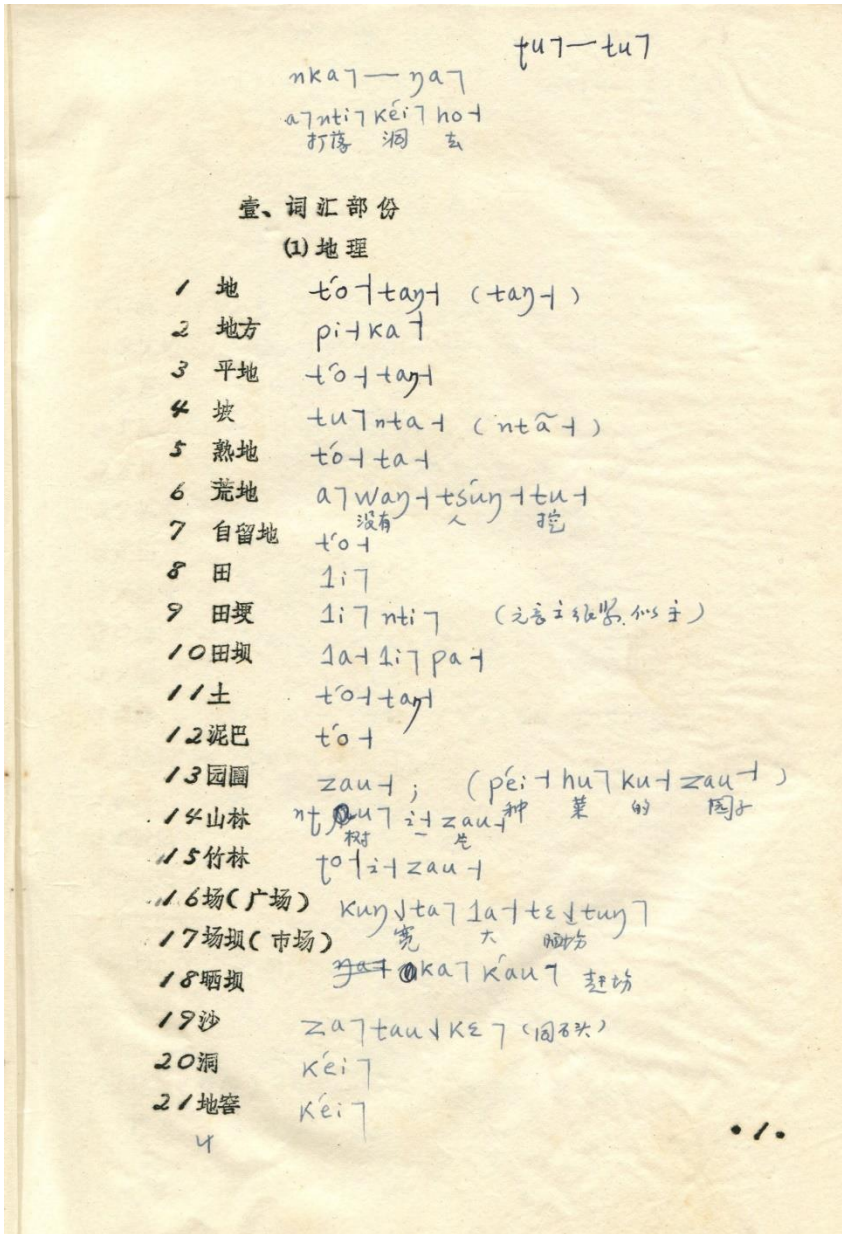 ȶu˥ — tu˥
nka˥ — ŋa˥
a˥nti˥ kʻei˥ ho˧
打落 洞 去
壹、词汇部份
(1)地理
1 地 tʻo˧taŋ˧ (taŋ˧)
2 地方 pi˧ka˥
3 平地 tʻo˧taŋ˧
4 坡 tu˥nta˧ (ntã˧)
5 熟地 tʻo˧ta˧
6 荒地 a˥waŋ˧tsʻuŋ˧tu˧
没有 人 挖
7 自留地 tʻo˧
8 田 li˥
9 田埂 li˥nti˥
10 田坝 la˧li˥pa˧
11 土 tʻo˧taŋ˧
12 泥巴 tʻo˧
13 园圃 zau˧; (pʻei˧hu˥ku˧zau˧)
种 菜 的 园子
14 山林 i˧zau˧
树 一
15 竹林 ȶo˧i˧zau˧
16 场(广场) kuŋ˩ta˥la˧tɛ˩tuŋ˥
宽 大
17 场坝(市场)
18 晒坝 ka˥kʻau˥ 赶场
19 沙 za˥tau˩kɛ˥ (同石头)
20 洞 kʻei˥
21 地窖 kʻei˥
4
•1•